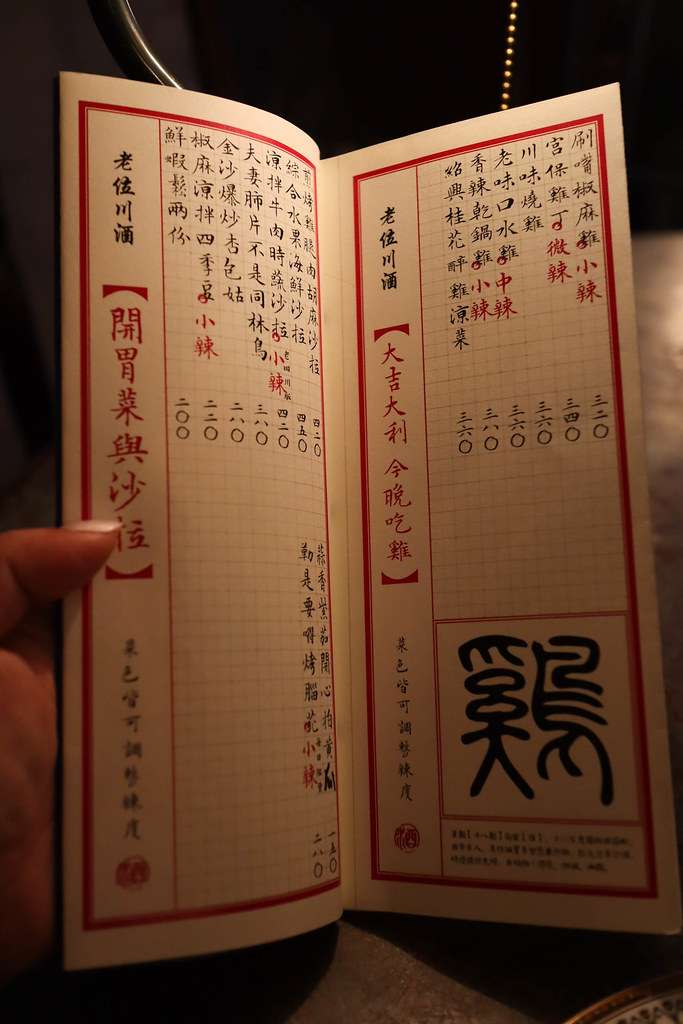 刷嘴椒麻雞 小辣 三二〇
宮保雞丁 微辣 三四〇
川味燒雞 三六〇
老味口水雞 中辣 三六〇
香辣乾鍋雞 小辣 三八〇
紹興桂花醉雞涼菜 三六〇
鷄
老位川酒
【大吉大利 今晚吃雞】
菜色皆可調整辣度
煎烤雞腿肉胡麻沙拉 四二〇
綜合水果海鮮沙拉 四五〇
涼拌牛肉時蔬沙拉 小辣 四二〇
夫妻肺片不是同林鳥 三八〇
金沙爆炒杏包菇 二八〇
椒麻涼拌四季豆 小辣 二二〇
鮮蝦鬆兩份 二〇〇
蒜香紫茄開心拍黃瓜 一五〇
勒是要嘚烤腦花 小辣 二八〇
老位川酒
【開胃菜與沙拉】
菜色皆可調整辣度